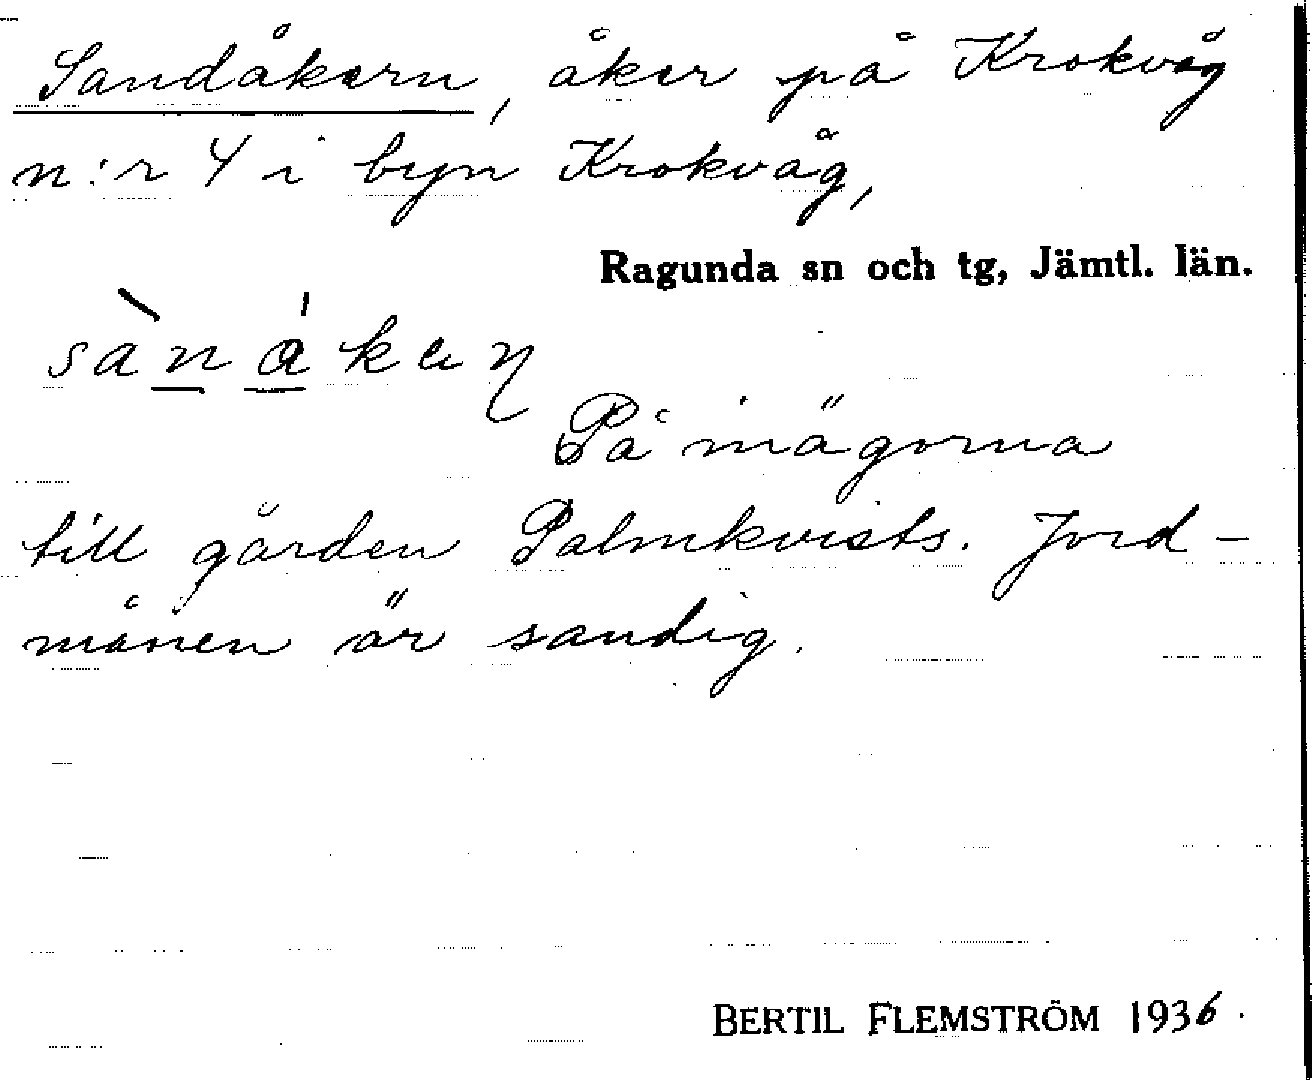 Sandåkern, åker på Krokvåg
n:r 4 i byn Krokvåg,
Ragunda sn och tg, Jämtl. län.
På inägorna
till gården Palmkvists. Jord-
månen är sandig.
BERTIL FLEMSTRÖM 1936.